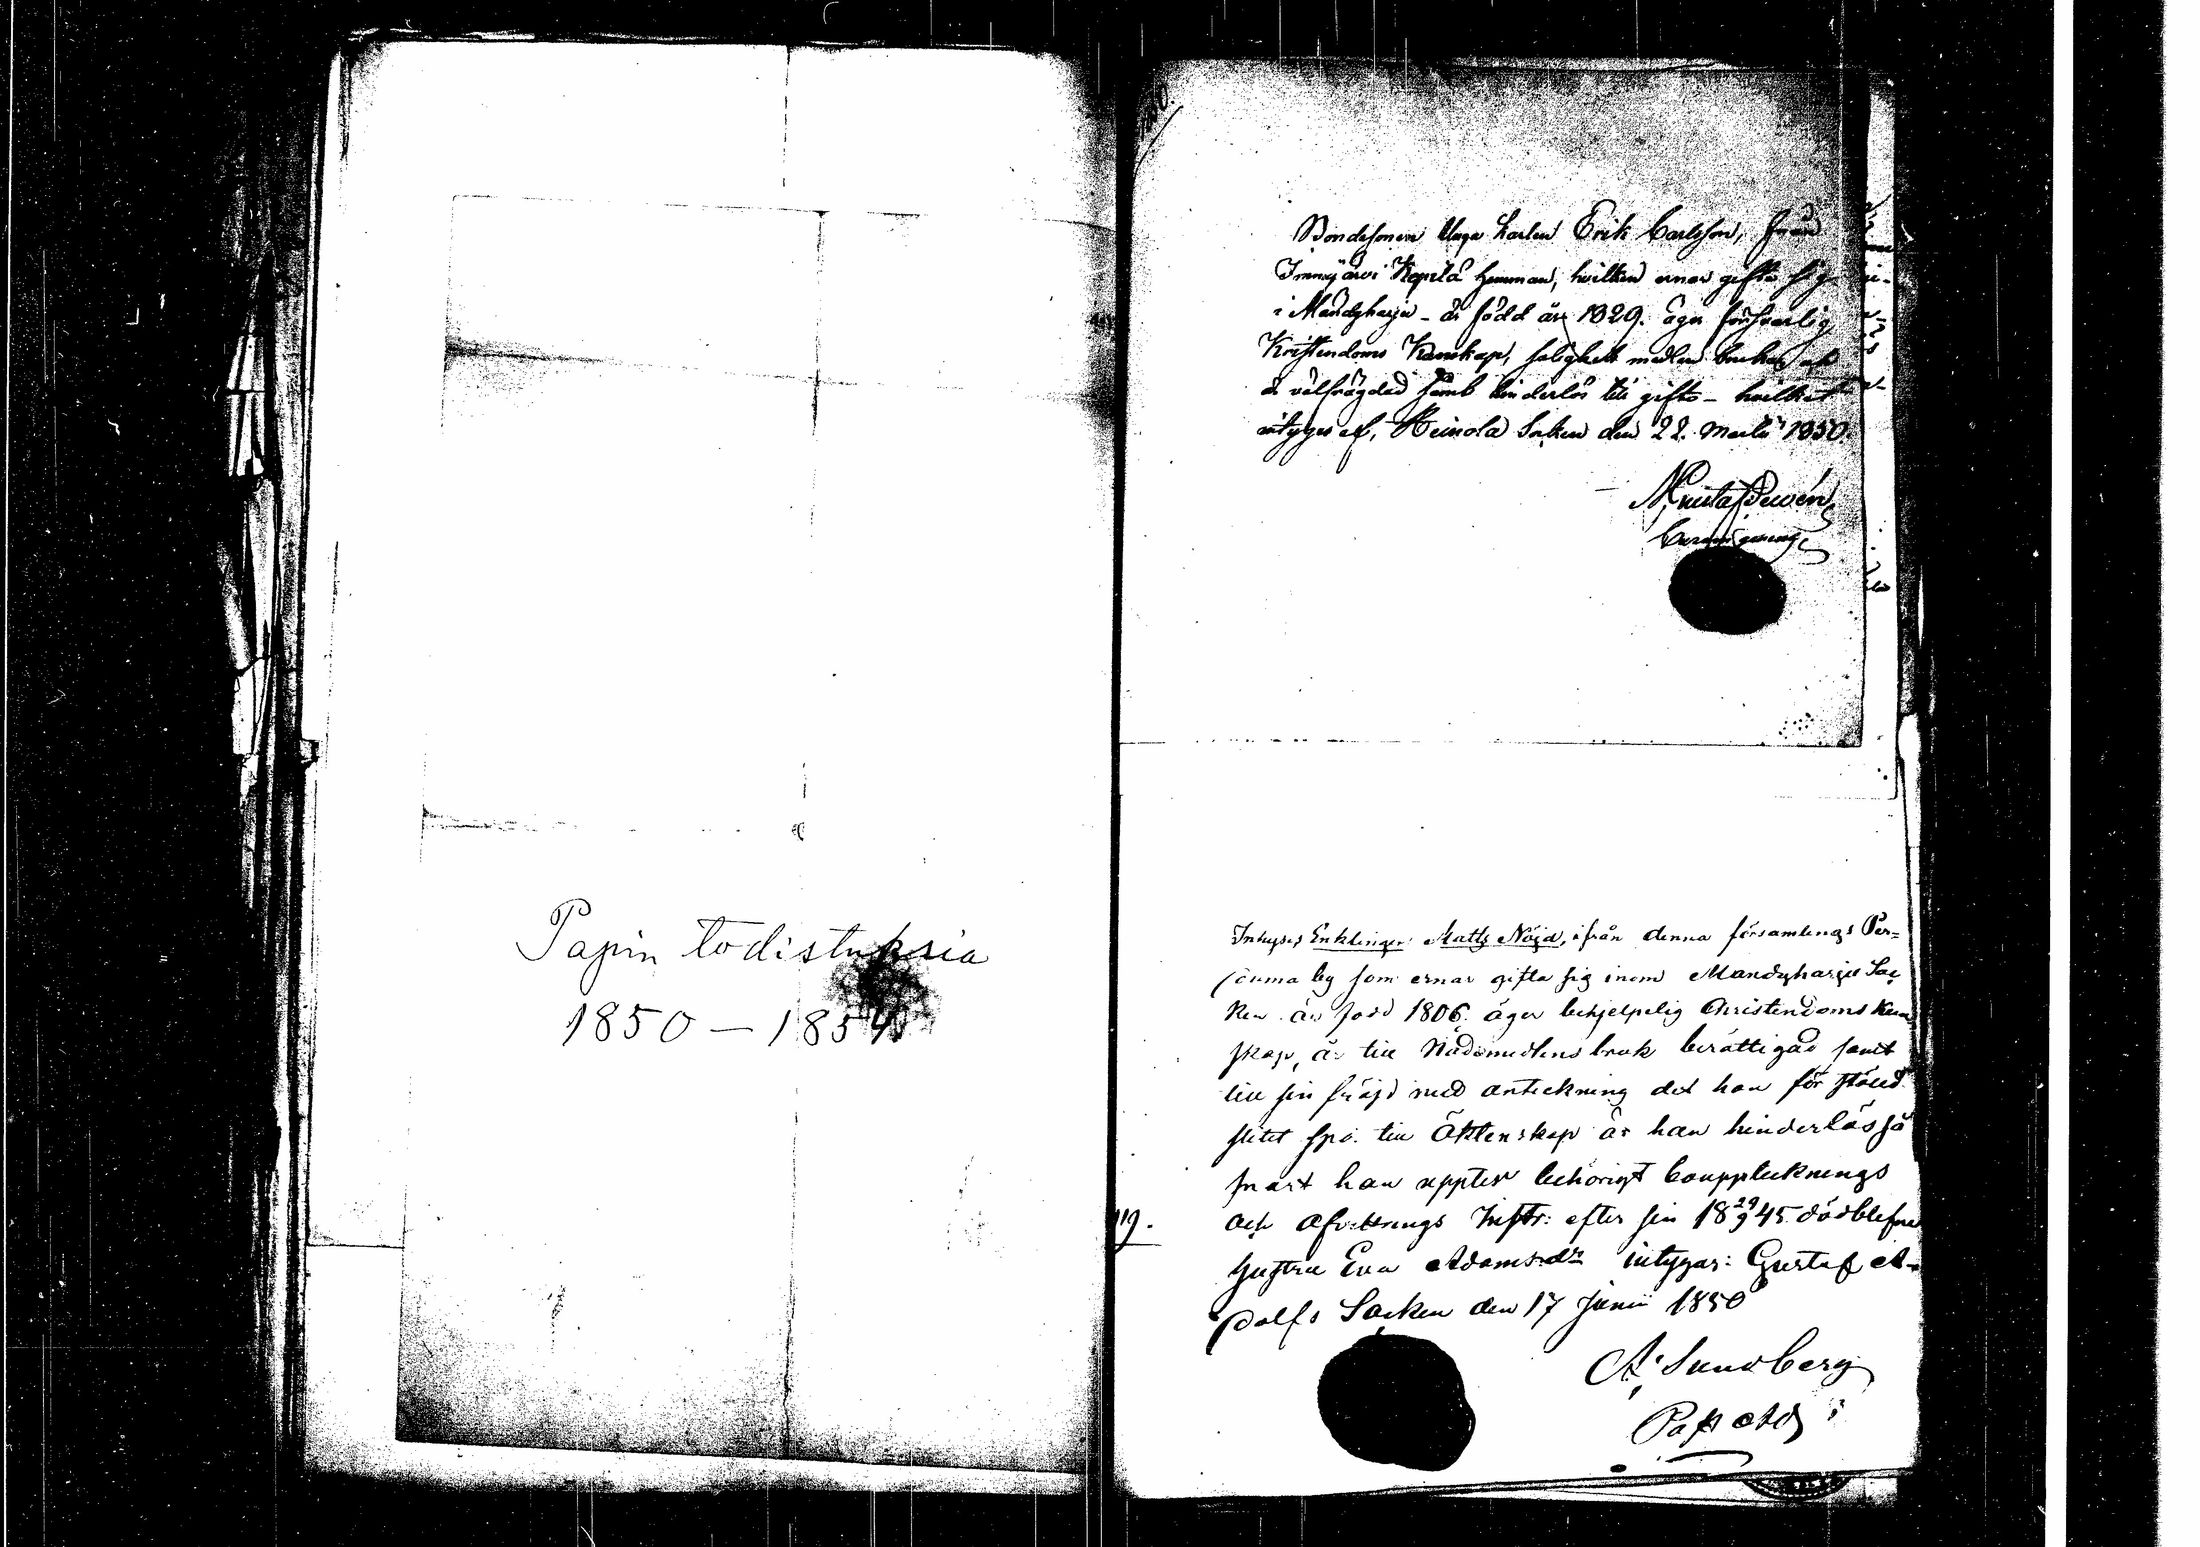 Papin todistuksia
1850 – 1854
Bondesonen Unga Karlen Erik Carlsson, från
Imnijärvi Kopila hemman, hvilken ernar gifta sig
i Mandyharju – är född år 1829. äger försvarlig
Kristendoms Kunskap, salighets medlen
är välfrägdad samt hinderlös till gifte – hvilket
intygas af, Heinola Socken den 22. Martii 1850.
119.
Inhyses Enklingen Matts Nöjd, ifrån denna församlings Per-
jouma by som ernar gifta sig inom Mandyharju Soc
ken är född 1806. äger behjelpelig Christendoms Kun
skap, är till Nådemedlens bruk berättigad samt
till sin fräjd med anteckning det han för stöld
slitit spö. till Äktenskap är han hinderlös så
snart han uppter behörigt bouppteknings
och Afvittrings Instr: efter sin 18 29/9 45. dödblefne
hustru Eva Adamsdr intygar: Gustaf A-
dolfs Socken den 17 Junii 1850
A. Sundberg
Past Adj: